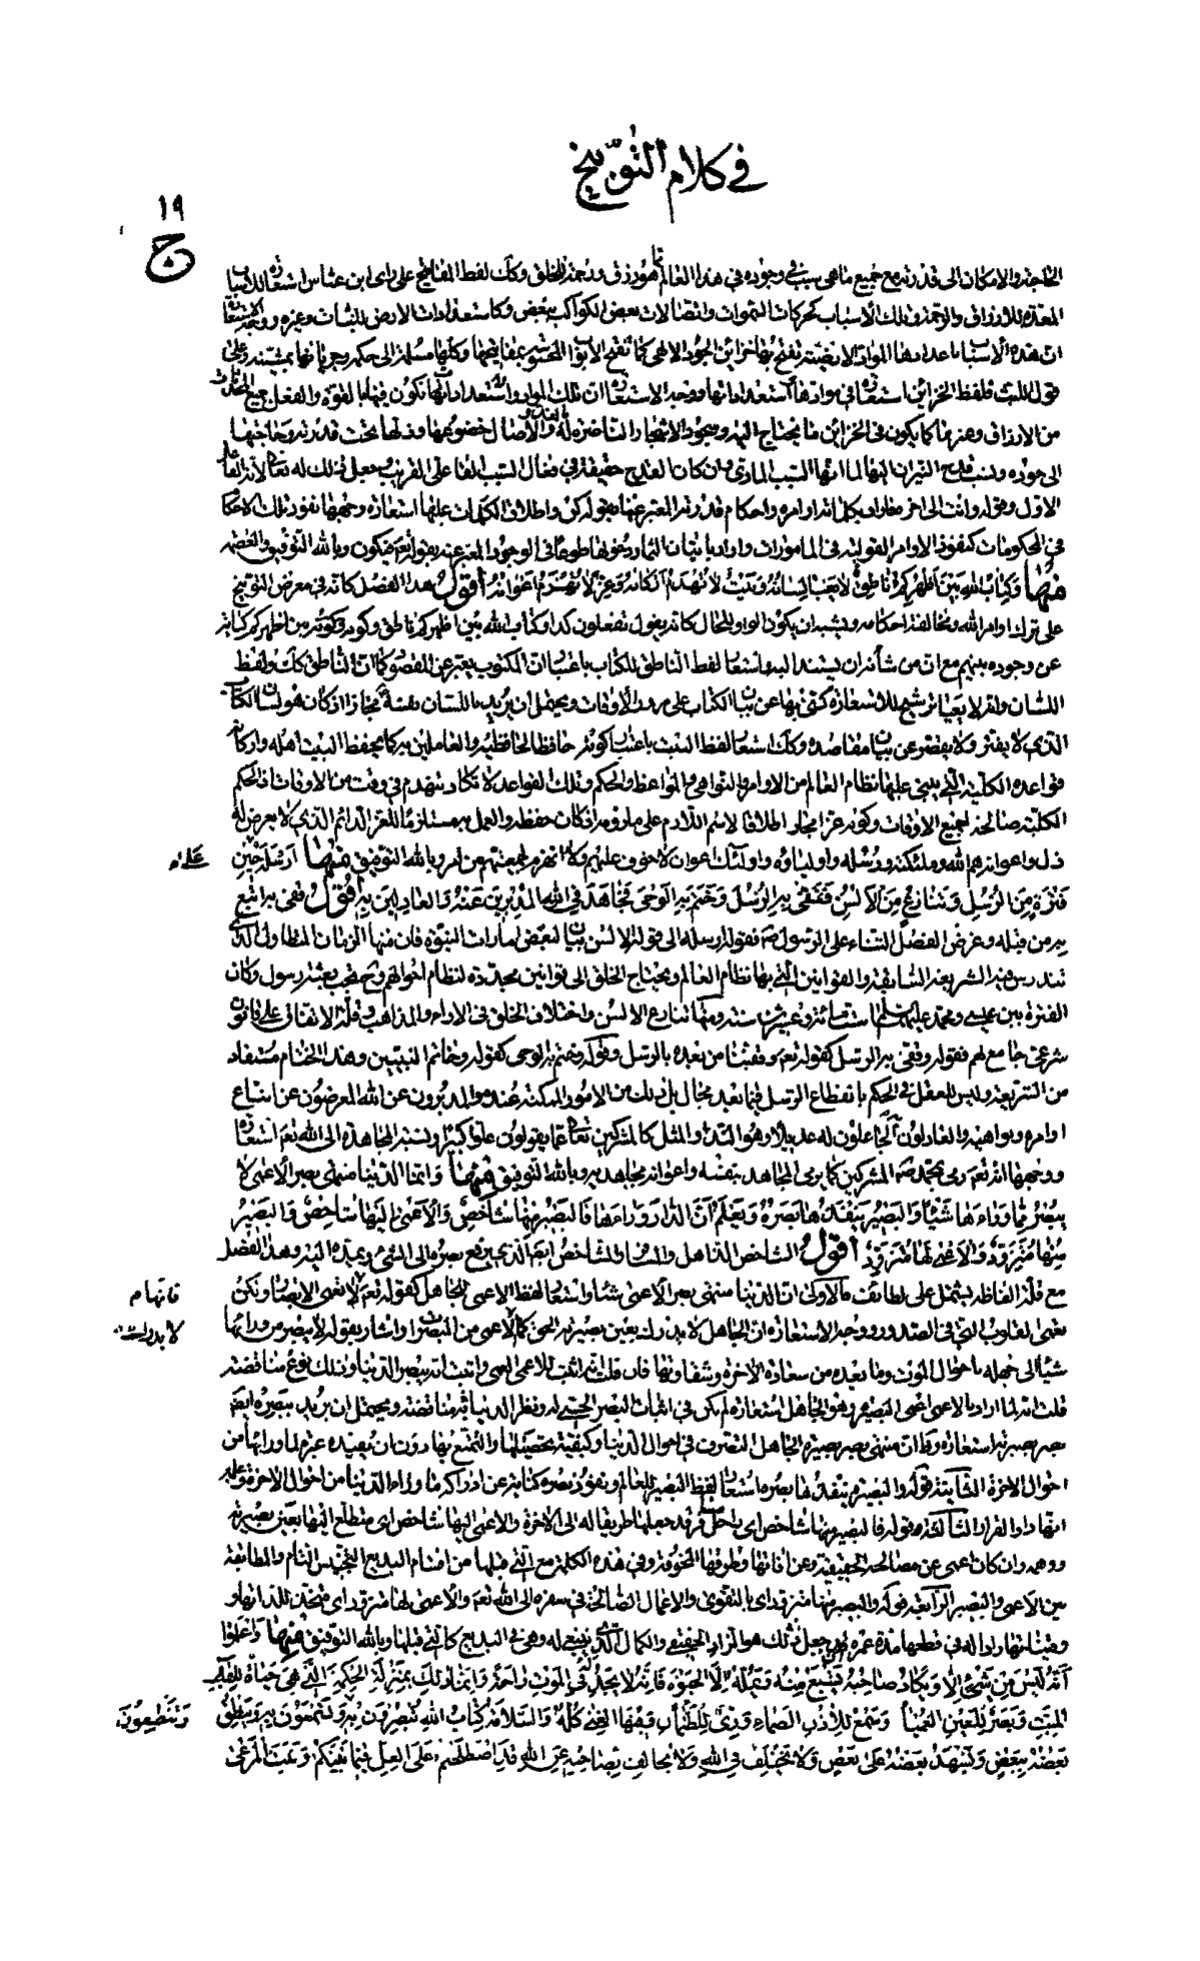 في كلام التوبيخ
١٩
ج
الحاجة والامكان الى قدرته مع جميع ما هي سبب في وجوده في هذا العالم مما هو رزق ورحمة للخلق وكك لفظ المفاتيح على راى ابن عباس استعارة للاسباب
المعدة للارزاق والرحمة وتلك الاسباب كحركات السموات واتصالات بعض الكواكب ببعض وكاستعدادات الارض للنبات وغيره ووجه الاستعارة
ان هذه الاسباب باعدادها المواد الارضية تفتح بها خزائن الجود الالهى كما تفتح الابواب المحسوسة بمفاتيحها وكلها مسلمة الى حكمه وجريانها بمشيته وعلى
قول الليث فلفظ الخزائن استعارة في موادها واستعداداتها ووجه الاستعارة ان تلك المواد والاستعدادات تكون فيها بالقوة والفعل جميع المحدثات
من الارزاق وغيرها كما يكون فى الخزائن ما يحتاج اليه وسجود الاشجار الناضرة له بالغدو والآصال خضوعها وذلها تحت قدرته وحاجتها
الى جوده ونسب قدح النيران اليها لما انها السبب المادى وان كان القدح حقيقة في فعال السبب الفاعلى القريب وجعل ذلك له تعالى لانه الفاعل
الاول وقوله وانت الى اخره مفاد بكلماته اوامره واحكام قدرته المعبر عنها بقوله كن واطلاق الكلمات عليها استعارة وجهها نفوذ تلك الاحكام
في المحكومات كنفوذ الاوامر القولية فى المامورات واراد باتيان الثمار دخولها طوعا في الوجود المعبر عنه بقوله تعم فيكون وبالله التوفيق والعصمة
منها وكتاب الله بين اظهركم ناطق لا يعيى لسانه وبيت لا تهدم اركانه وعز لا تهزم اعوانه اقول هذا الفصل كانه في معرض التوبيخ
على ترك اوامر الله ومخالفة احكامه ويشبه ان يكون الواو للحال كانه يقول تفعلون كذا وكتاب الله بين اظهركم ناطق وكونه بين اظهركم كناية
عن وجوده بينهم مع ان من شأنه ان يستند اليه واستعار لفظ الناطق للكتاب باعتبار ان المكتوب يعبر عن المقصود كما ان الناطق كك ولفظ
اللسان وانه لا يعيا ترشيح للاستعارة كنى بها عن بيان الكتاب على مرور الاوقات ويحتمل ان يريد باللسان نفسه مجازا اذ كان هو لسان الكتاب
الذى لا يفتر ولا يقصر عن بيان مقاصده وكك استعار لفظ البيت باعتبار كونه حافظا لحافظيه والعاملين به كما يحفظ البيت اهله واركانه
قواعده الكلية التى يبنى عليها نظام العالم من الاوامر والنواهى والمواعظ والحكم وتلك القواعد لا تكاد تنهدم في وقت من الاوقات اذ الحكم
الكلية صالحة لجميع الاوقات وكونه عزا مجاز اطلاقا لاسم اللازم على ملزومه اذ كان حفظه والعمل به مستلزما للعز الدائم الذى لا يعرض له
ذل واعوانه هم الله وملئكته ورسله واولياؤه واولئك اعوان لا خوف عليهم ولا انهزم لجمعيتهم عن امره وبالله التوفيق منها ارسله حين
على
فترة من الرسل وتنازع من الالسن فقفى به الرسل وختم به الوحى فجاهد في الله المدبرين عنه والعادلين به اقول قفى به اتبع
به من قبله وغرض الفصل الثناء على الرسول ص فقوله ارسله الى قوله الالسن بيان لبعض امارات النبوة فان منها الزمان المتطاول الذى
تندرس فيه الشريعة السابقة والقوانين التى بها نظام العالم ويحتاج الخلق الى قوانين مجددة لنظام احوالهم وح يجب بعثة رسول وكان
الفترة بين عيسى ومحمد عليهما السلم ستمائة وعشرين سنة ومنها تنازع الالسن واختلاف الخلق فى الاراء والمذاهب وقلة الاتفاق على قانون
شرعى جامع لهم فقوله وقفى به الرسل كقوله تعم وقفينا من بعده بالرسل وقوله وختم به الوحى كقوله وخاتم النبيين وهذا الختام مستفاد
من الشريعة وليس للعقل في الحكم بانقطاع الرسل فيما بعد مجال بل ذلك من الامور الممكنة عنده والمدبرون عن الله المعرضون عن اتباع
اوامره ونواهيه والعادلون به الجاعلون له عديلا وهو الند والمثل كالمشركين تعالى عما يقولون علوا كبيرا ونسبة المجاهدة الى الله تعم استعارة
ووجهها انه تعم رمى بمحمد ص المشركين كما يرمى المجاهد بنفسه واعوانه مجاهديه وبالله التوفيق منها وانما الدنيا منتهى بصر الاعمى لا
يبصر مما وراءها شيئا والبصير ينفذها بصره ويعلم ان الدار وراءها فالبصير منها شاخص والاعمى اليها شاخص والبصير
منها متزود والاعمى لها متزود اقول الشاخص الذاهل والمسافر والشاخص ايضا الذى يرفع بصره الى الشىء ويمده اليه وهذا الفصل
مع قلة الفاظه يشتمل على لطائف فالاولى ان الدنيا منتهى بصر الاعمى شئا واستعار لفظ الاعمى للجاهل كقوله تعم لا تعمى الابصار ولكن
فانها م
تعمى القلوب التى فى الصدور ووجه الاستعارة ان الجاهل لا يدرك بعين بصيرته الحق كما الاعمى من المبصرات واشار بقوله لا يبصر من ورائها
لا يدرك
شيئا الى جهله باحوال الموت وما بعده من سعادة الاخرة وشقاوتها فان قلت انه اثبت للاعمى العمى واثبت انه يبصر الدنيا وذلك نوع مناقضة
قلت انه لما اراد بالاعمى اعمى البصيرة وهو الجاهل استعارة لم يكن في اثبات البصر الحسى له ونظر الدنيا به مناقضة ويحتمل ان يريد ببصره ايضا
بصر بصيرته استعارة وظ ان منتهى بصر بصيرة الجاهل التصرف في احوال الدنيا وكيفية تحصيلها والتمتع بها دون ان يفيده عبرة لما ورائها من
احوال الاخرة الثانية قوله والبصير ينفذها بصره استعار لفظ البصير للعالم ونفوذ بصره كناية عن ادراكه ما وراء الدنيا من احوال الاخرة وعلمه
انها دار القرار الثالثة قوله فالبصير منها شاخص اى راحل مسافر قد جعلها طريقا له الى الاخرة والاعمى اليها شاخص اى متطلع اليها بعين بصيرته
ووهمه وان كان اعمى عن مصالحه الحقيقية وعن افاتها وطرقها المخوفة وفي هذه الكلمة مع التى قبلها من اقسام البديع التجنيس التام والمطابقة
بين الاعمى والبصير الرابعة قوله والبصير منها متزود اى بالتقوى والاعمال الصالحة في سفره الى الله تعم والاعمى لها متزود اى متخذ للذاتها و
وقيناتها زادا له في قطعها مدة عمره قد جعل ذلك هو الزاد الحقيقى والكمال الذى ينبغى له وهى في البديع كالتى قبلها وبالله التوفيق منها واعلموا
انه ليس من شىء الا ويكاد صاحبه يشبع منه ويمله الا الحيوة فانه لا يجد في الموت راحة وانما ذلك بمنزلة الحكمة التى هى حياة للقلب
الميت وبصر للعين العمياء وسمع للاذن الصماء ورى للظمآن وفيها الغنى كله والسلامة كتاب الله تبصرون به وتسمعون به وينطق
وتنطقون
بعضه ببعض ويشهد بعضه على بعض ولا يختلف في الله ولا يخالف بصاحبه عن الله قد اصطلحتم على الغل فيما بينكم ونبت المرعى